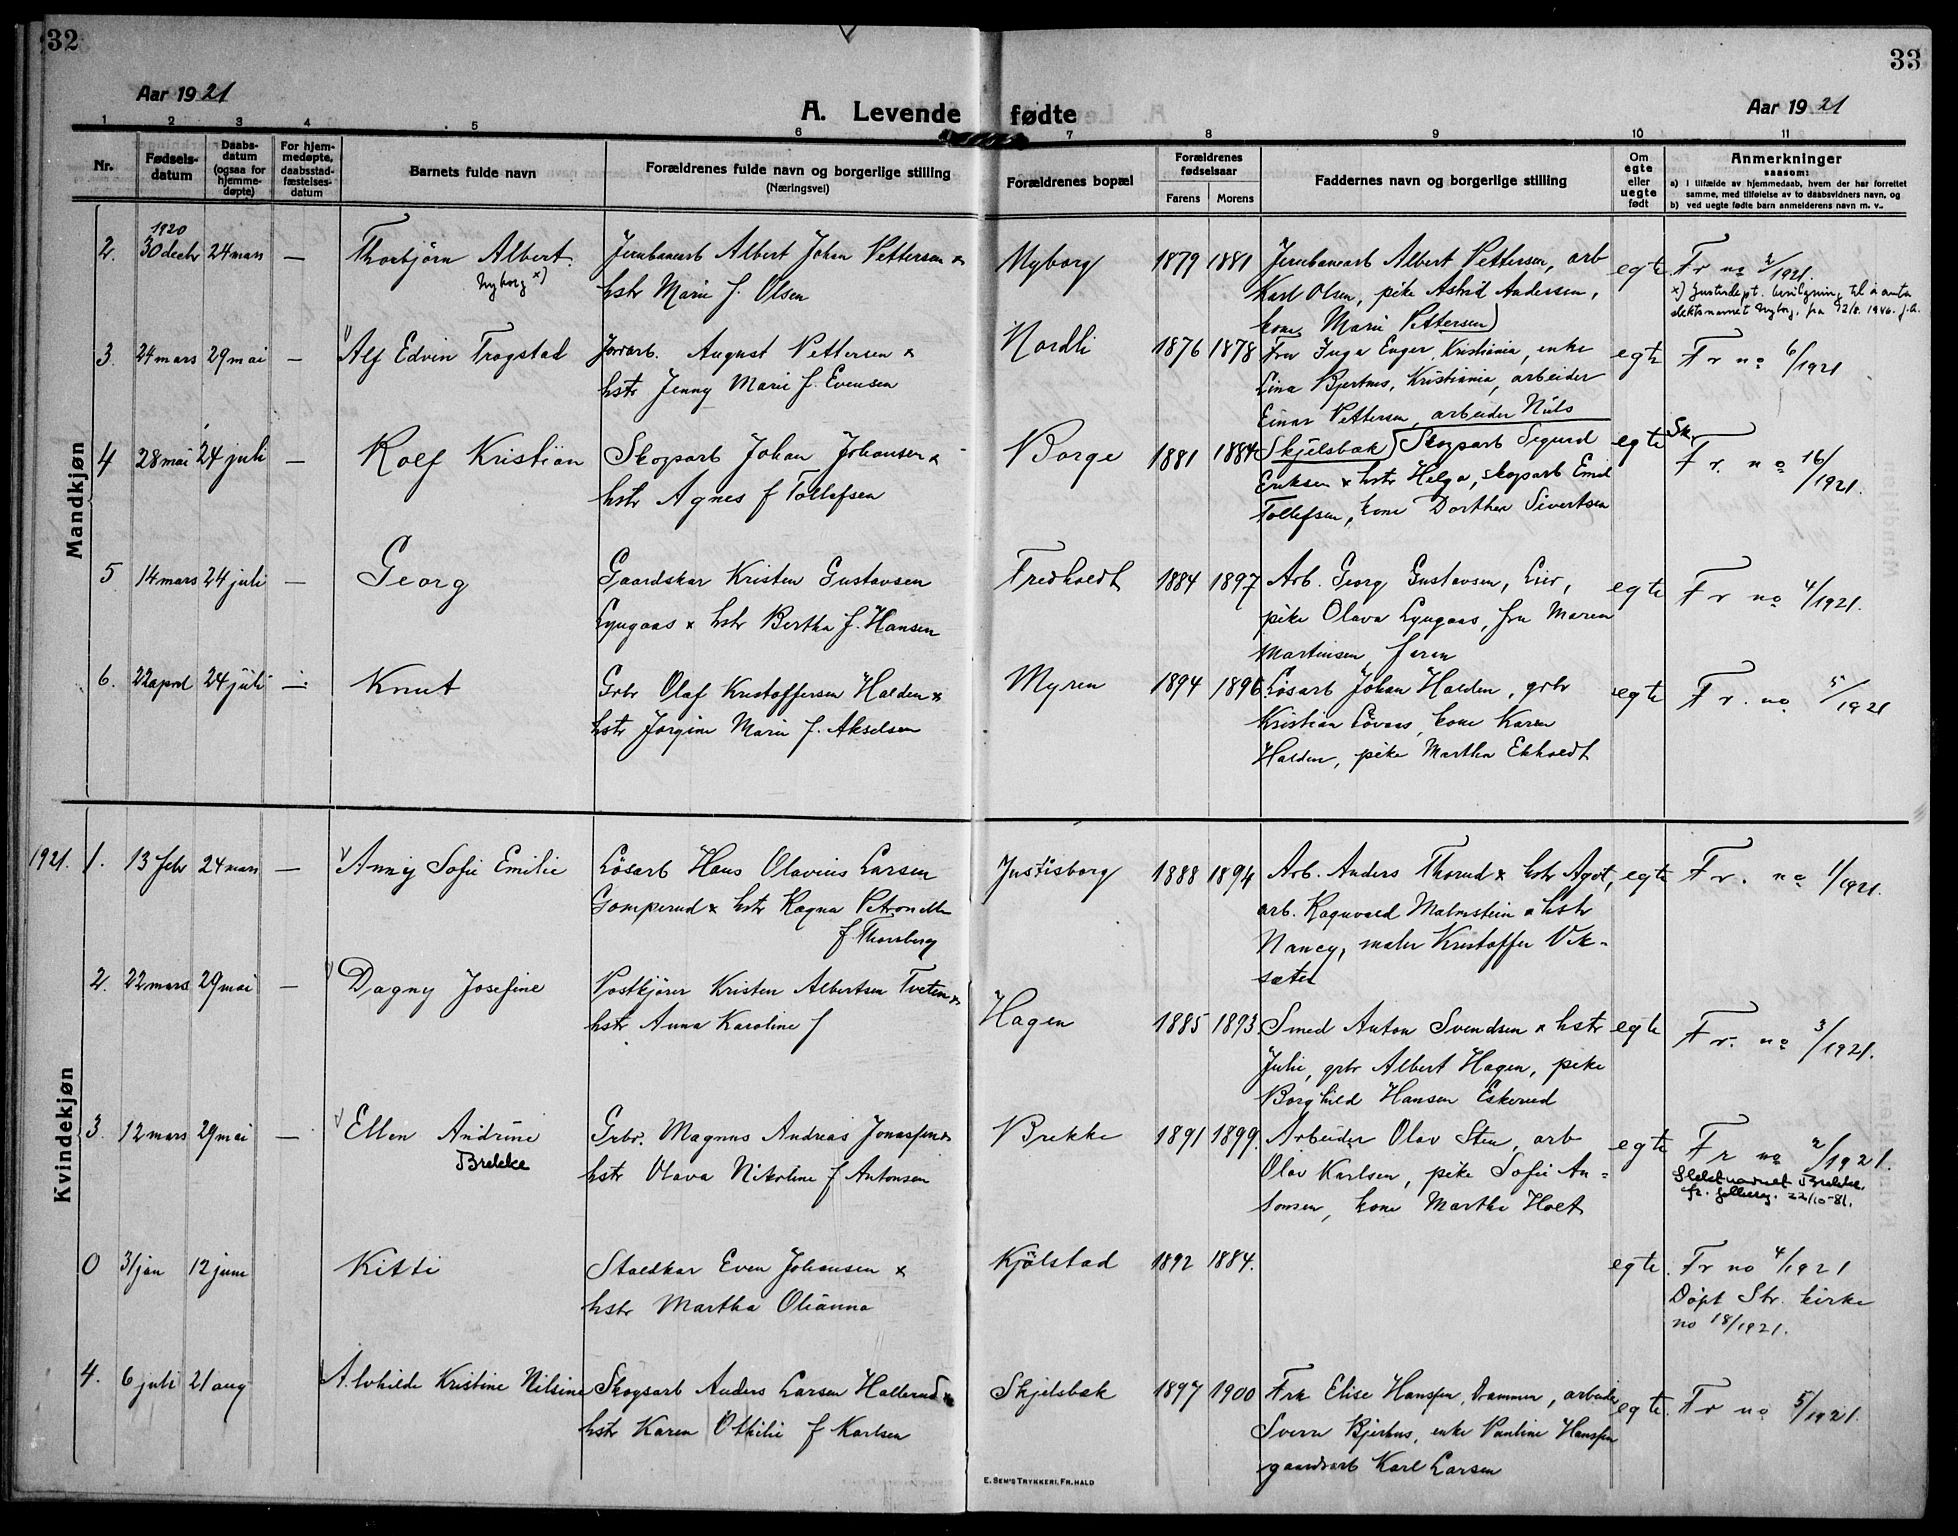 32
33
Aar 1921
A. Levende fødte
Aar 1921
1 2 3 4 5 6 7 8 9 10 11
Nr.
Fødsels-
datum
Daabs-
datum
(ogsaa for
hjemme-
døpte)
For hjem-
medøpte,
daabsstad-
fæstelses-
datum
Barnets fulde navn
Forældrenes fulde navn og borgerlige stilling
(Næringsvei)
Forældrenes bopæl
Forældrenes
fødselsaar
Farens Morens
Faddernes navn og borgerlige stilling
Om
egte
eller
uegte
født
Anmerkninger
saasom:
a) i tilfælde av hjemmedaab, hvem der har forrettet
samme, med tilføielse av to daabsvidners navn, og
b) ved uegte fødte barn anmelderens navn m. v..
Mandkjøn
1920
2. 30 decbr 24 mars — Thorbjörn Albert
Nyborg x)
Jernbanearb Albert Johan Pettersen &
hstr Marie f. Olsen
Nyborg 1879 1881
Jernbanearb Albert Pettersen, arb
Karl Olsen, pike Astrid Andersen,
kone Marie Pettersen
egte
Fr no 2/1921.
x) Justisdept. bevilgning til å anta
slektsnavnet Nyborg, fra 12/8. 1946.
3. 24 mars 29 mai — Alf Edvin Trogstad
Jordarb. August Pettersen &
hstr Jenny Marie f. Evensen
Nordli 1876 1878
Fru Inga Enger, Kristiania, enke
Lina Bjertnes, Kristiania, arbeider
Einar Pettersen, arbeider Nils
Skjelsbæk
egte
Fr no 6/1921
4 28 mai 24 juli — Rolf Kristian
Skogsarb Johan Johansen &
hstr Agnes f Tollefsen
Borge 1881 1884
Skogsarb Sigurd
Eriksen & hstr Helga, skogsarb Emil
Tollefsen, kone Dorthea Sivertsen
egte
Sk.
Fr. no 16/1921.
5 14 mars 24 juli — Georg
Gaardskar Kristen Gustavsen
Lyngaas & hstr Bertha f. Hansen
Fredholdt 1884 1897
Arb. Georg Gustavsen, Lier,
pike Olava Lyngaas, fru Maren
Martinsen
egte
Fr no 4/1921.
6. 22 april 24 juli — Knut
Grbr Olaf Kristoffersen Halden &
hstr Jorgine Marie f. Akselsen
Myren 1894 1896
Løsarb Johan Halden, grbr
Kristian Lövaas, kone Karen
Halden, pike Martha Ekholdt
egte
Fr. no 5/1921
Kvindekjøn
1921. 1. 13 febr 24 mars — Anny Sofie Emilie
Lösarb Hans Olavius Larsen
Gomperud & hstr Ragna Petronelle
f. Thorsberg
Justisborg 1888 1894
Arb. Anders Thorud & hstr Agot,
arb. Ragnvald Malmstein & hstr
Nancy, maler Kristoffer Vik-
sæter
egte
Fr. no 1/1921.
2. 22 mars 29 mai — Dagny Josefine
Postkjører Kristen Albertsen Tveten &
hstr Anna Karoline f
Hagen 1885 1893
Smed Anton Svendsen & hstr
Julie, grbr Albert Hagen, pike
Borghild Hansen Eskerud
egte
Fr. no 3/1921.
3. 12 mars 29 mai — Ellen Andrine
Brekke
Grbr. Magnus Andreas Jonassen &
hstr Olava Nikoline f Antonsen
Brekke 1891 1899
Arbeider Olav Sten, arb
Olav Karlsen, pike Sofie An-
tonsen, kone Martha Holt
egte
Fr no 2/1921.
Slektsnavnet Brekke.
fr. 22/10-81.
0 31 jan 12 juni Kitti
Staldkar Even Johansen &
hstr Martha Olianna
Kjölstad 1892 1884.
egte.
Fr no 4/1921
Döpt Str. kirke
no 18/1921.
4. 6 juli 21 aug Alvhilde Kristine Nilsine
Skogsarb Anders Larsen Hallerud &
hstr Karen Othilie f Karlsen
Skjelsbæk 1897 1900
Frk Elise Hanssen, Drammen, arbeider
Sverre Bjertnes, enke Pauline Hanssen
gaardsarb Karl Larsen
egte.
Fr no 5/1921.
E. SEM'S TRYKKERI, FR.HALD